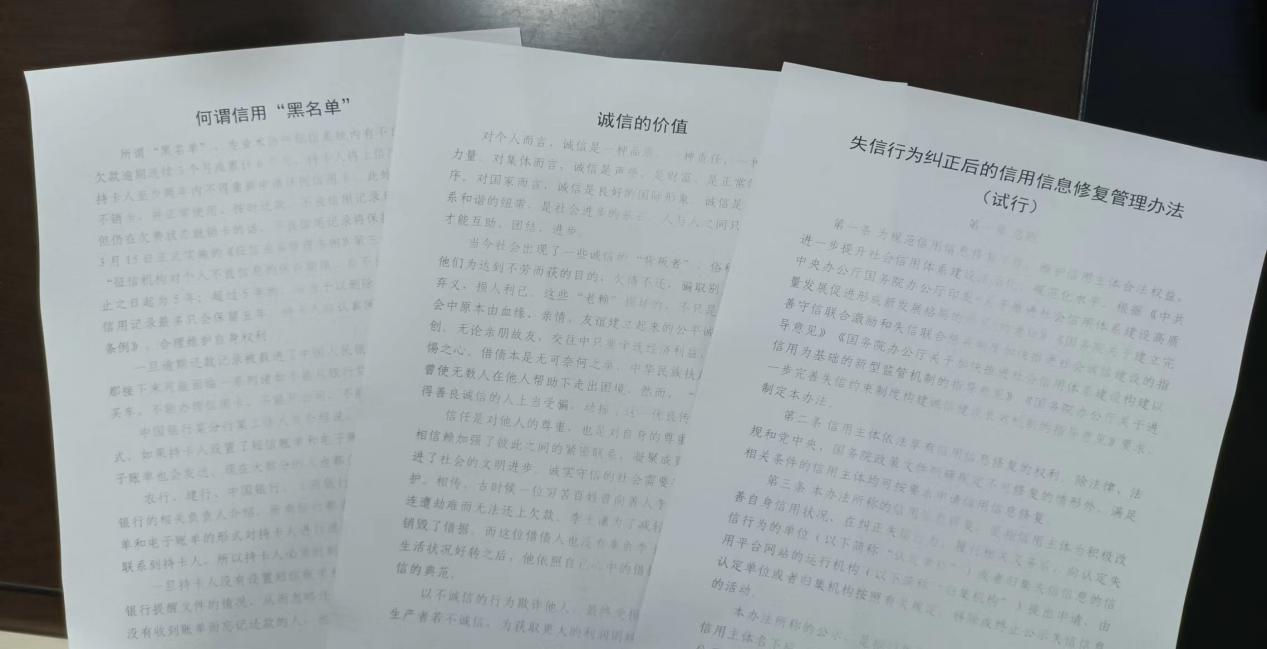 何谓信用“黑名单”
所谓“黑名单”，专业术
欠款逾期连续3个月或累计6个月，持卡人将上信
持卡人至少两年内不得重新申请
不销卡，并正常使用、按时还款，不良信用记录
但仍在欠费状态就销卡的话，不良信用记录将保
3月15日正式实施的《征信业管理条例》第三
“征信机构对个人不良信息的保存期限，自不
止之日起为5年；超过5年的，应当予以删除
信用记录最多只会保留五年，持卡人应认真
条例》，合理维护自身权利
一旦逾期还款记录被报送了中国人民银
那接下来可能面临一系列诸如不能从银行贷
买车，不能办理信用卡，不能开公司，不能
中国银行某分行某工作人员介绍说，
式，如果持卡人设置了短信账单和电子账
子账单也会发送，现在大部分的人也都
农行、建行、中国银行、工商银行
银行的相关负责人介绍，所有银行都
单和电子账单的形式对持卡人进行
联系到持卡人，所以持卡人必须
一旦持卡人没有设置短信账单
银行提醒文件的情况，从而忽略
没有收到账单而忘记还款的人，
诚信的价值
对个人而言，诚信是一种品质，一种责任，一种
力量。对集体而言，诚信是声誉，是财富，是正常
序。对国家而言，诚信是良好的国际形象。诚信是
系和谐的纽带，是社会进步的 人与人之间只
才能互助、团结、进步。
当今社会出现了一些诚信的“背叛者”，俗称
他们为达到不劳而获的目的，欠债不还，骗取别
弃义，损人利己。这些“老赖”损坏的，不只是
会中原本由血缘、亲情、友谊建立起来的公平诚
创。无论亲朋故友，交往中只要牵连经济利益，
惕之心。借债本是无可奈何之举，中华民族扶
曾使无数人在他人帮助下走出困境。然而，“
得善良诚信的人上当受骗，动摇了这一优良传
信任是对他人的尊重，也是对自身的尊重
相信赖加强了彼此之间的紧密联系，凝聚成
进了社会的文明进步。诚实守信的社会需要
护。相传，古时候一位穷苦百姓曾向善人李
连遭劫难而无法还上欠款。李士谦为了减轻
销毁了借据。而这位借债人也没有辜负李
生活状况好转之后，他依照自己心中的借
信的典范。
以不诚信的行为欺诈他人，最终受损
生产者若不诚信，为获取更大的利润
失信行为纠正后的信用信息修复管理办法
（试行）
第一章 总则
第一条 为规范信用信息修复工作，维护信用主体合法权益，
进一步提升社会信用体系建设法治化、规范化水平，根据《中共
中央办公厅国务院办公厅印发<关于推进社会信用体系建设高质
量发展促进形成新发展格局的意见>的通知》《国务院关于建立完
善守信联合激励和失信联合惩戒制度加快推进社会诚信建设的指
导意见》《国务院办公厅关于加快推进社会信用体系建设构建以
信用为基础的新型监管机制的指导意见》《国务院办公厅关于进
一步完善失信约束制度构建诚信建设长效机制的指导意见》要求，
制定本办法。
第二条 信用主体依法享有信用信息修复的权利。除法律、法
规和党中央、国务院政策文件明确规定不可修复的情形外，满足
相关条件的信用主体均可按要求申请信用信息修复。
第三条 本办法所称的信用信息修复，是指信用主体为积极改
善自身信用状况，在纠正失信行为、履行相关义务后，向认定失
信行为的单位（以下简称“认定单位”）或者归集失信信息的信
用平台网站的运行机构（以下简称“归集机构”）提出申请，由
认定单位或者归集机构按照有关规定，移除或终止公示失信信息
的活动。
本办法所称的公示，是指
信用主体名下